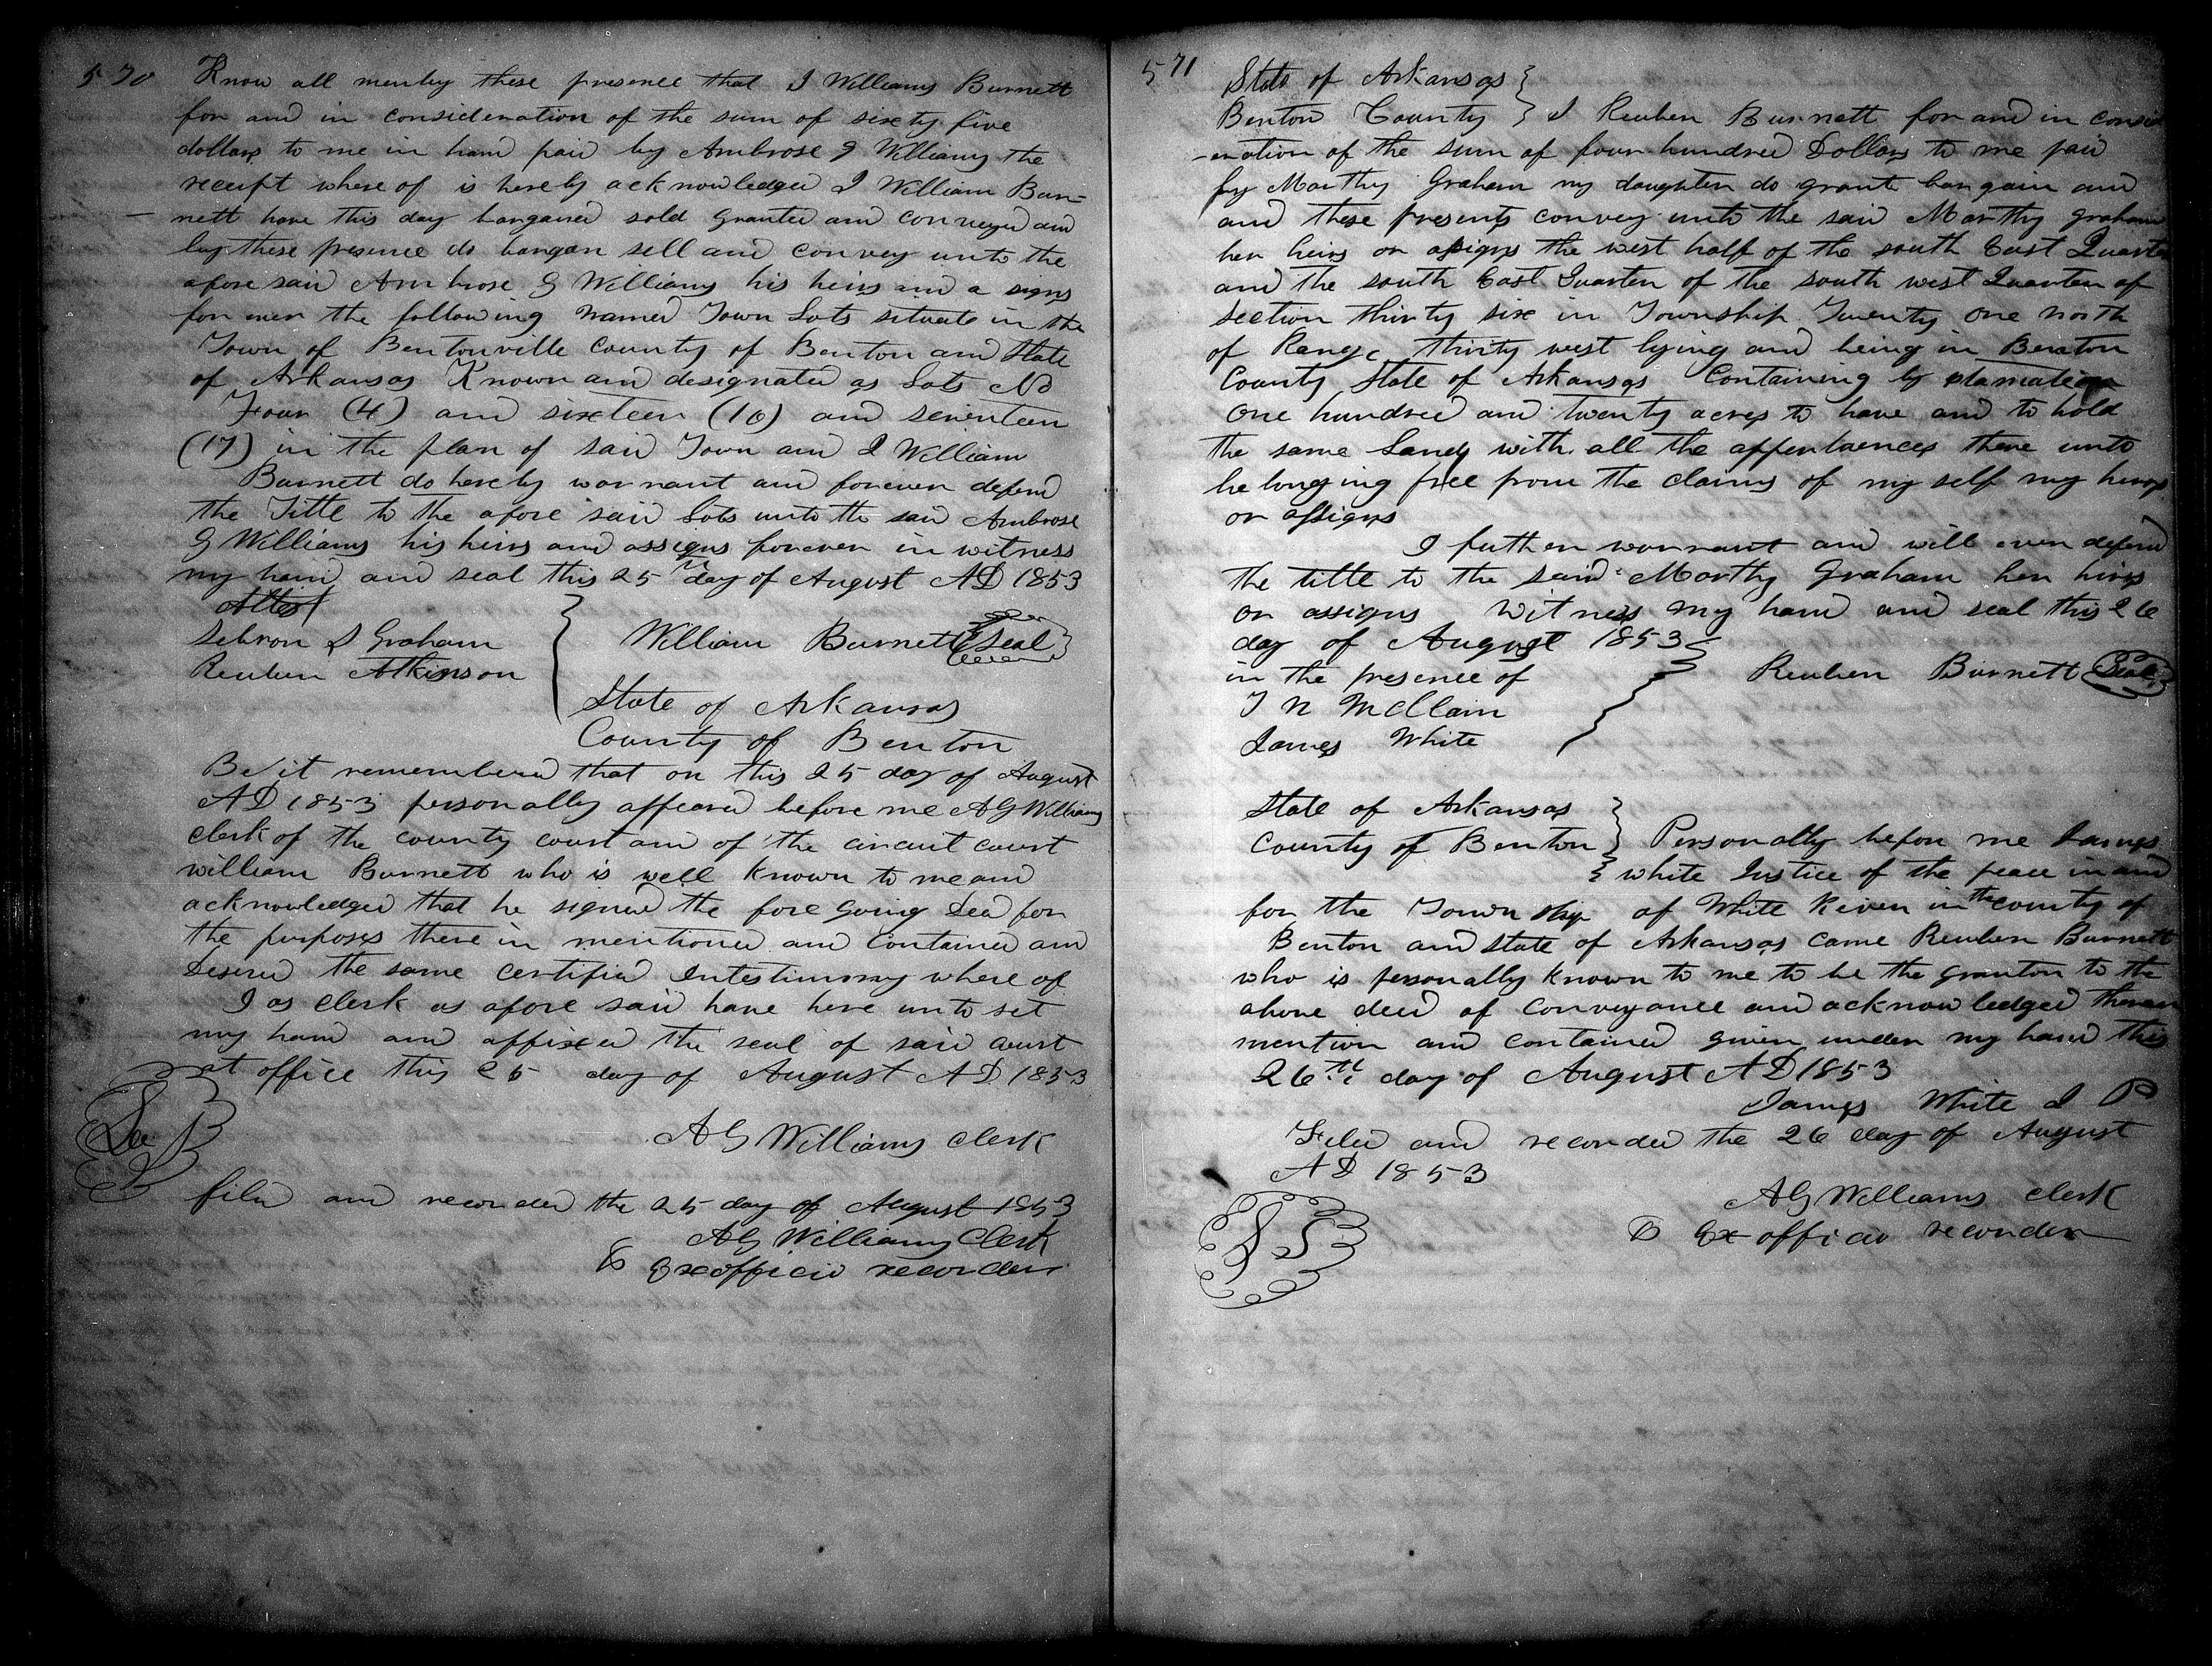 570
Know all menby these presence that I Williams Burnett
for and in consideration of the sum of sixty five
dollars to me in hand paid by Ambrose G Williams the
receipt where of is hereby acknowledged I William Bur-
nett have this day bargained sold granted and conveyed and
by these presence do bargan sell and convey unto the
afore said Ambrose G Williams his heirs and a signs
for ever the following named Town Lots situate in the
Town of Bentonville County of Benton and State
of Arkansas Known and designated as Lots No
Four (4) and sixteen (16) and seventeen
(17) in the plan of said Town and I William
Burnett do hereby warrant and forever defend
the Title to the afore said Lots unto the said Ambrose
G Williams his heirs and assigns forever in witness
my hand and seal this 25th day of August AD 1853
Attest
Sebron S Graham
Reuben Atkinson
William Burnett Seal
State of Arkansas
County of Benton
Be it remembered that on this 25 day of August
AD 1853 personally appeared before me AG Williams
clerk of the county court and of the circuit court
william Burnett who is well known to me and
acknowledged that he signed the fore going Deed for
the purposes there in mentioned and contained and
Desired the same certified Intestimony where of
I as clerk as afore said have here unto set
my hand and affixed the seal of said court
at office this 25 day of August AD 1853
AG Williams clerk
filed and recorded the 25 day of August 1853
AG Williams Clerk
& Exofficio recorder
571
State of Arkansas
Benton County I Reuben Burnett for and in consid
-eration of the sum of four hundred Dollars to me paid
by Marthy Graham my daughter do grant bargain and
and these presents convey unto the said Marthy graham
her heirs or assigns the west half of the south East Quarter
and the south East Quarter of the south west Quarter of
section thirty six in Township Twenty one north
of Range thirty west lying and being in Benton
County State of Arkansas Containing by
One hundred and twenty acres to have and to hold
the same Lands with all the appentaences there unto
belonging free from the claims of my self my heirs
or assigns
I futher warrant and will ever defend
the title to the said Marthy Graham her heirs
or assigns Witness my hand and seal this 26
day of August 1853
in the presence of
J N McClain
James White
Reuben Burnett Seal
State of Arkansas
County of Benton Personally before me James
white Justice of the peace in and
for the Town ship of White River in the county of
Benton and state of Arkansas came Reuben Burnett
who is personally known to me to be the grantor to the
above deed of conveyance and acknowledged therein
mention and contained given under my hand this
26th day of August AD 1853
James White J P
Filed and recorded the 26 day of August
AD 1853
AG Williams clerk
& Ex officio recorder